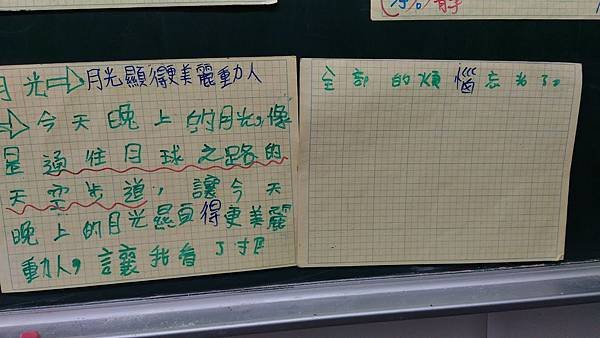 月光⇒月光顯得更美麗重力人
⇒今天晚上的月光,像
是通往月球之路的
天空步道,讓今天
晚上的月光顯得更美麗
動人,讓我看了把
全部的煩惱忘光了。